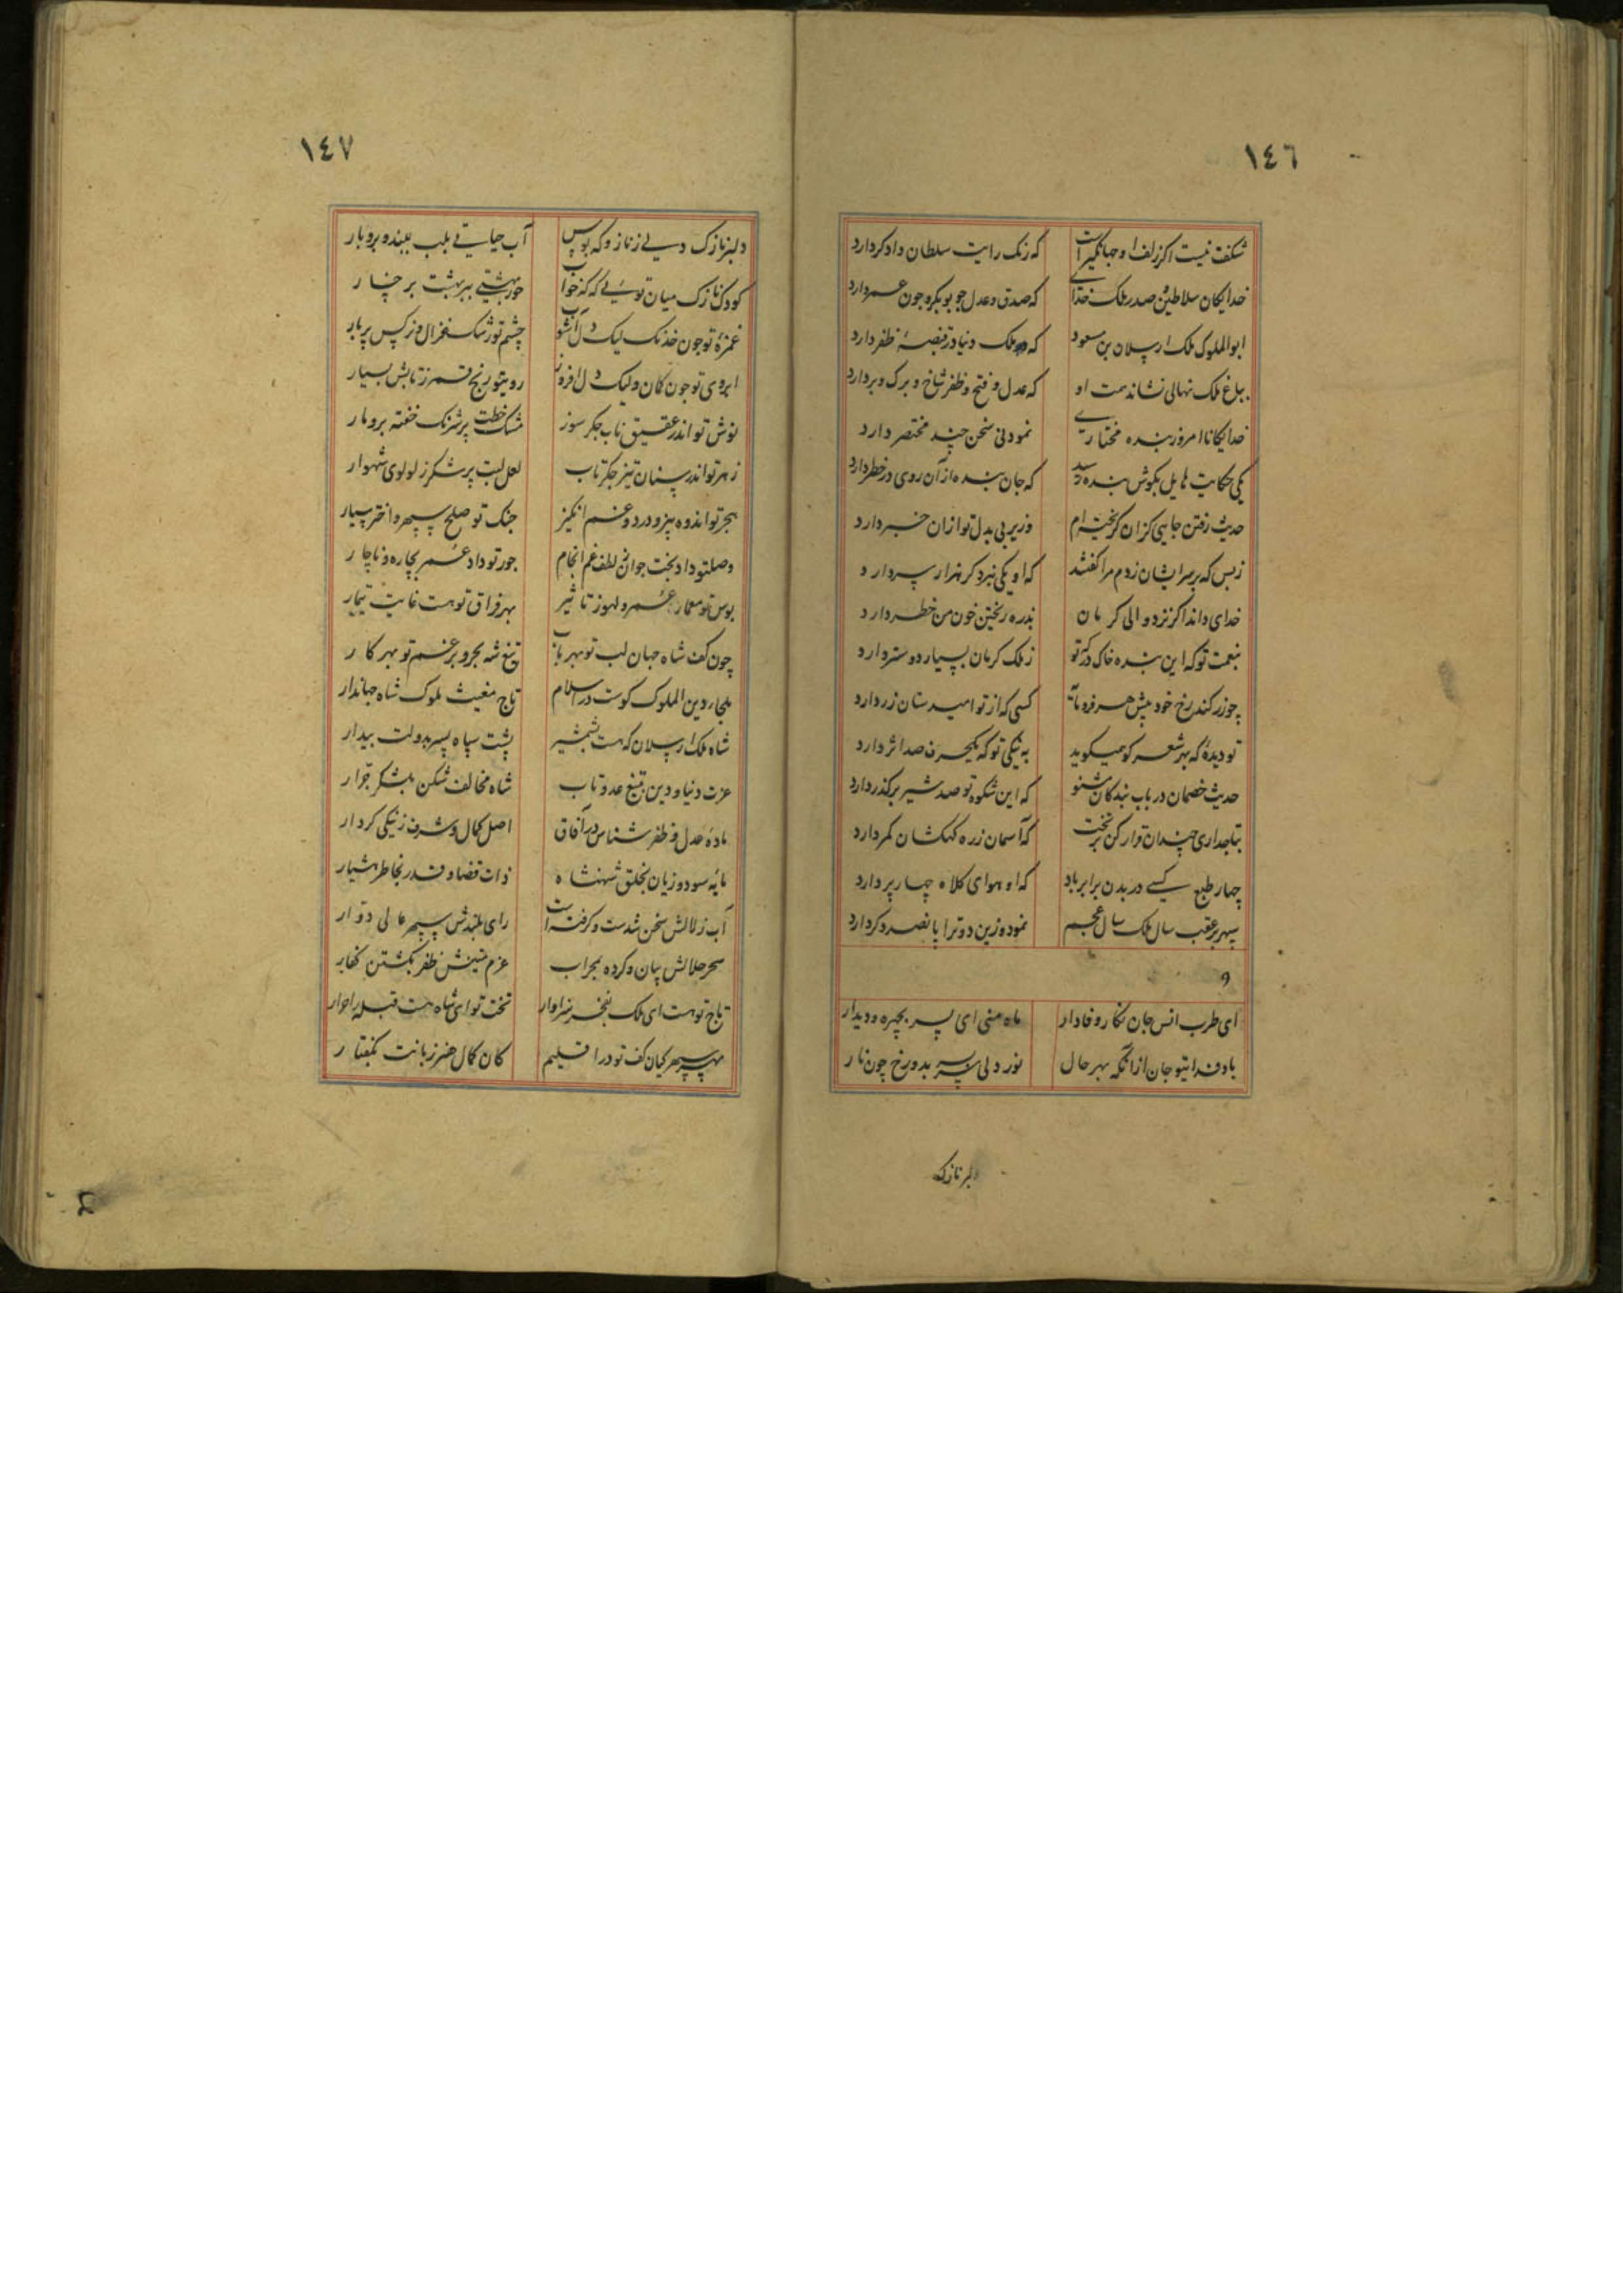 ١٤٦
شکفت نیست اکر زلف او جهانکیر است که زنک رایت سلطان دادکر دارد
خدایکان سلاطین صدر ملک خدای که صدق و عدل چو بوبکر و چون عمر دارد
ابوالملوک ملک ارسلان بن مسعود که ملک دنیا در قبضهٔ ظفر دارد
بباغ ملک نهالی نشاند همت او که عدل و فتح و ظفر شاخ و برک و بر دارد
خدایکانا امروز بنده مختاری نمودنی سخن چند مختصر دارد
یکی حکایت هایل بکوش بنده رسید که جان بنده از آن روی در خطر دارد
حدیث رفتن جایی کزان کریخته‌ام وزیر بی بدل تو ازان خبر دارد
زبس که بر سر ایشان زدم مرا کفتند که او یکی نبرد کر هزار سر دارد
خدای داند اکر نزد والی کرمان بذره ریختن خون من خطر دارد
بنعمت تو که این بنده خاک درکه تو ز ملک کرمان بسیار دوستر دارد
چو زر کند رخ خود پیش هر فرومایه کسی که از تو امید ستان زر دارد
تو دیدهٔ که بهر شعر کو همیکوید به نیکی تو که یکحرف صد اثر دارد
حدیث خصمان در باب بندکان مشنو که این شکوه تو صد شیر بر کذر دارد
بتاجداری چندان قرار کن بر تخت که آسمان زره کهکشان کمر دارد
چهار طبع کسی در بدن برابر باد که او هوای کلاه چهار پر دارد
سپهر بر عقب سال ملک سال عجم نمود و زین دو ترا پانصد و کر دارد
و
ای طرب انس جان نکار وفادار ماه منی ای پسر بچهره و دیدار
باد فدا یتو جان ازانکه بهر حال نور دلی ای پسر بدو رخ چون نار
دلبر نازک
١٤٧
دلبر نازک دلی زناز و که بوس آب حیاتی بلب ببند و بر و بار
کودک نازک میان توئی که که خواب حور بهشتی ببر بهشت برخسار
غمزهٔ تو چون خدنک لیک دل آشوب چشم تو رشک غزال و نرکس پربار
ابروی تو چون کمان ولیک دل افروز رویتو رنج قمر ز تابش بسیار
نوش تو اندر عقیق ناب جکر سوز مشک خطت پر شرنک خفته برو مار
زهر تو اندر سنان تیز جکر تاب لعل لبت پر شکر ز لولوی شهوار
هجر تو اندوه بیز و درد و غم انکیز جنک تو صلح سپهر و اختر سیار
وصلتو داد بخت جوان لطف غم انجام جور تو داد عمر بیچاره و ناچار
بوس تو معمار عمر و لهوز تاثیر بهر فراق تو هست غایت تیمار
چون کف شاه جهان لب تو بهر باب تیغ شه بحر و بر غم تو بهر کار
ملجاء دین الملوک کوست در اسلام تاج مغیث ملوک شاه جهاندار
شاه ملک ارسلان که هست بشمشیر پشت سپاه پسر بدولت بیدار
عزت دنیا و دین بتیغ عدو تاب شاه مخالف شکن بلشکر جرار
مادهٔ عدل و ظفر شناس در آفاق اصل کمال و شرف ز نیکی کردار
مایه سود و زیان بخلق شهنشاه ذات قضا و قدر بخاطر هشیار
آب زلالش سخن شدست و کرفته است رای بلندش سپهر عالی دوار
سحر حلالش بیان و کرده بمحراب عزم متینش ظفر بکشتن کفار
تاج تو هست ای ملک بفخر سزاوار تخت تو ای شاه هست قبله احرار
مهر سپهر کیان کف تو در اقلیم کان کمال هنر زبانت بکفتار